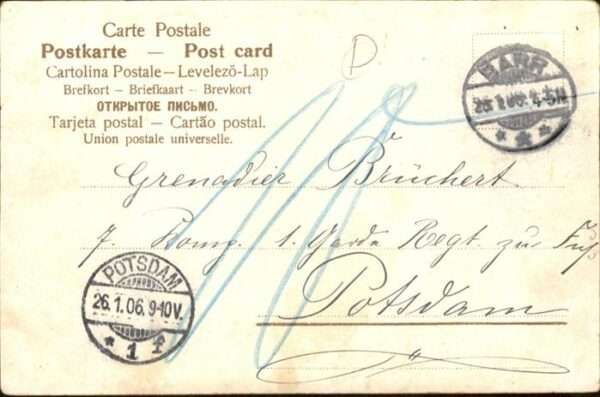 Carte Postale
Postkarte — Post card
Cartolina Postale — Levelező-Lap
Brefkort — Briefkaart — Brevkort
ОТКРЫТОЕ ПИСЬМО.
Tarjeta postal — Cartão postal.
Union postale universelle.
D.
BARR
25.1.06. 4-5N
Grenadier Brüchert
7. Komp. 1. Garde Regt. zu Fuß
Potsdam
POTSDAM
26.1.06. 9-10V.
* 1 f